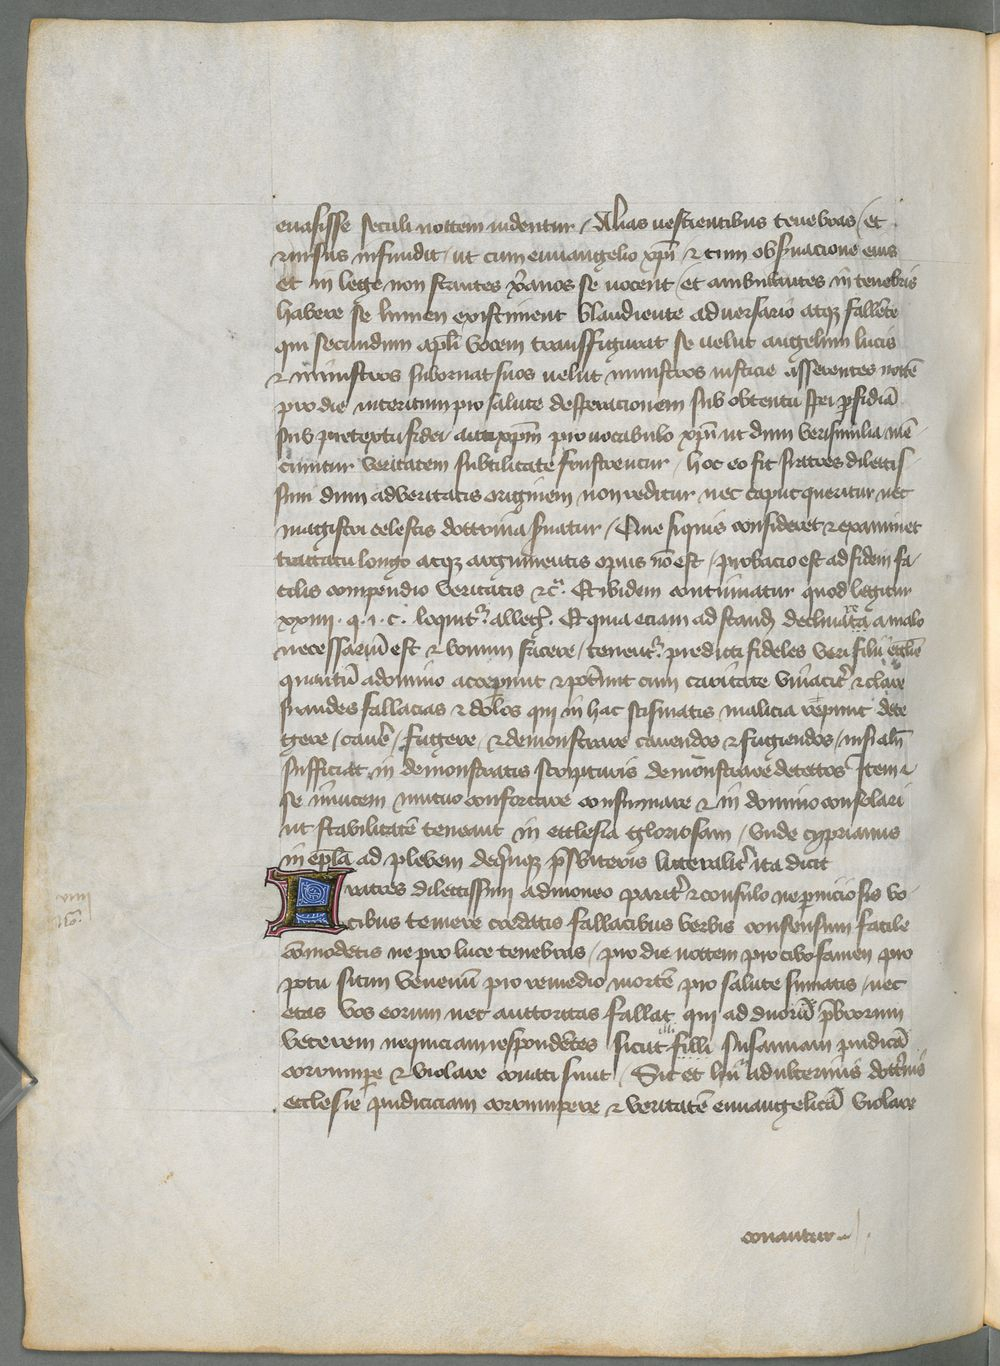 euasisse seculi noctem uidentur / Alias nescientibus tenebras / et
rursus infundit / ut cum euuangelio xp̄i ⁊ cum obẜuacione eius
et in lege non stantes xp̄anos se uocent / et ambulantes in tenebris
habere se lumen existiment blandiente aduersario atqꝫ fallēte
qui secundum apl̄i vocem transffigurat se uelut angelum lucis
⁊ ministros subornat suos uelut ministros iusticie asserentes noctē
pro die interitum pro salute desperacionem sub obtentu spei ꝑfidiā
sub pretextu fidei antixp̄m pro uocabulo xp̄i ut dum verisimilia mē-
ciuntur veritatem subtilitate frustrentur / hoc eo fit fratres dilectis-
simi dum ad veritatis originem non reditur nec caput queritur nec
magistri celestis doctrina ẜuatur / Que siquis consideret ⁊ examinet
tractatu longo atqꝫ argumentis opus nō est / probacio est ad fidem fa-
cilis compendio veritatis ⁊cͣ. Et ibidem continuatur quod legitur
xxiiii · q · i · c · loquitᷣ. Et quia eciam ad declinare a malo
necessariū est ⁊ bonum facere / tenentᷣ predicti fideles veri filii ecclē̄
quantū a domino acceperunt ⁊ cum caritate viuacitᷣ ⁊ clare
fraudes fallacias ⁊ dolos qui in hac scismatis malicia repiunt dete
gere / cauēˀ / fugere / ⁊ demonstrare cauendos ⁊ fugiendos / nisi aliī
sufficiat in demonstratis scripturis demōnstrare detectos Item ⁊
se inuicem mutuo confortare confirmare ⁊ in domino consolari
ut stabilitatē teneant in ecclesia gloriosam / vnde cyprianus
in epl̄a ad plebem de qͥnqꝫ p̄sbiteris litteralitᷣ ita dicit
Fratres dilectissimi admoneo paritᷣ ⁊ consulo ne ꝑniciosis vo-
cibus temere credatis fallacibus verbis consensum facile
cōmodetis ne pro luce tenebras / pro die noctem pro cibo famen pro
potu sitim venenū pro remedio mortē pro salute sumatis / nec
etas vos eorum nec auttoritas fallat qui ad duorū p̄bitorum
veterem nequiciam respondētes sicut illi susannam pudicā
corrumpe ⁊ violare conati sunt / Sic et hii adulterinis doctͥnis
ecclesie pudiciciam corrumpere ⁊ veritatē euuangelicā violare
conantur